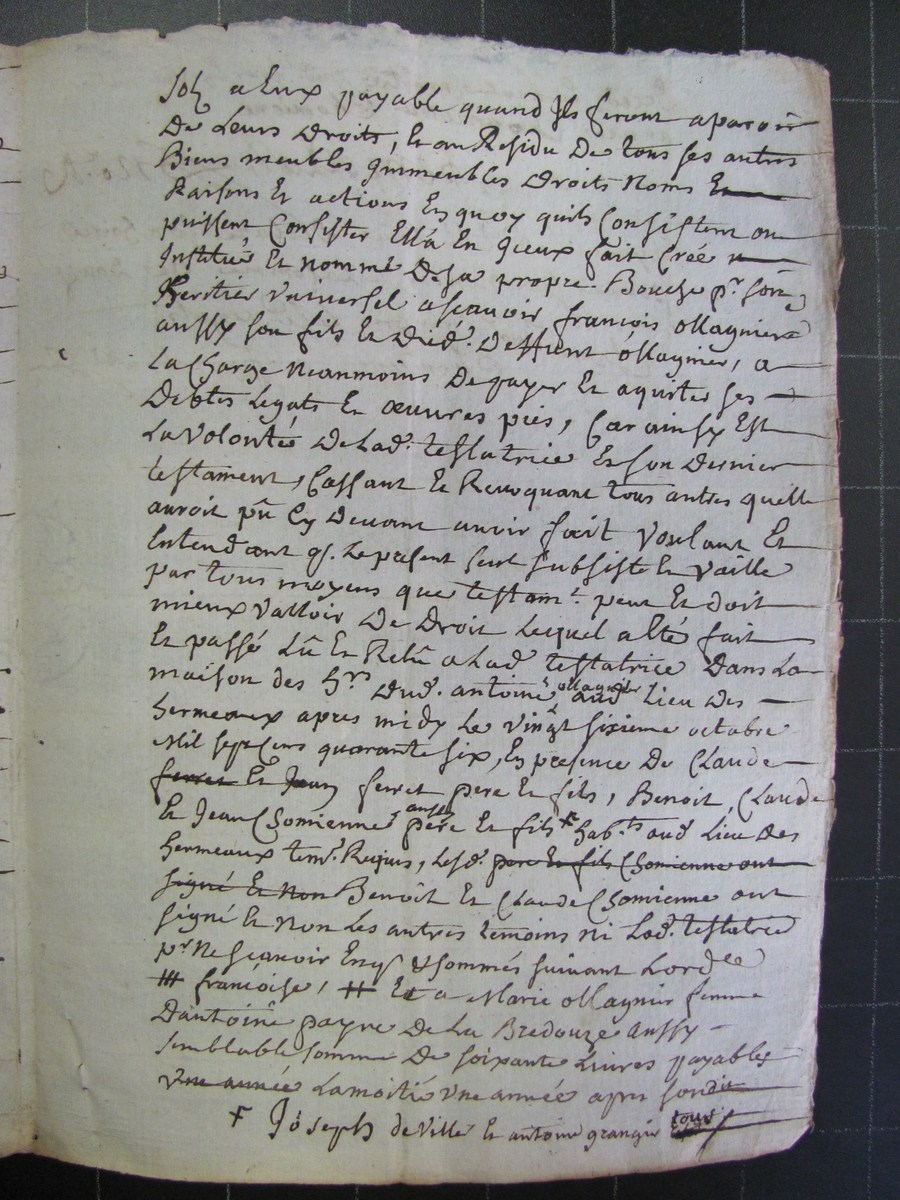 Sols a Eux payable quand Ils feront aparoir
De Leurs Droits, Et au Residu De tous ses autres
Biens meubles Immeubles Droits Noms Et
Raisons Et actions En quoy quils Consistent ou
puissent Consister Ella En Iceux fait Créé
Institué Et nommé De sa propre Bouche pr son
heritier vniversel ascavoir françois ollagnier
aussy son fils Et Dud. Deffunt ollagnier, a
La Charge neanmoins De payer Et aquiter ses
Debtes Legats Et œuvres pies, Car ainsy Est
La Volonté De Lad. testatrice Et son Dernier
testament, Cassant Et Revoquant tous autres quelle
auroit pû Cy Devant avoir fait Voulant Et
Entendant q. Le present seul subsiste Et Vaille
par tous moyens que testamt. peut Et doit
mieux Valloir De Droit Lequel a Eté fait
Et passé Lû Et Relû a Lad. testatrice Dans La
maison des hrs Dud. antoine ollagnier aud. Lieu Des
hermeaux apres midy Le vingt sixieme octobre
Mil sept cens quarante six, En presence De Claude
ferret Et Jean ferret pere Et fils, Benoit, Claude
Et Jean Chomienne aussy pere Et fils + habts. aud. Lieu Des
hermeaux tem. Requis, Lesd. pere Et fils Chomienne ont
signé Et Non Benoit Et Claude Chomienne ont
signé Et Non Les autres temoins ni Lad. testatrice
pr Ne scavoir Enq. & sommés suivant Lordce
# françoise, # Et a Marie ollagnier femme
D'antoine payre De La Bredouze aussy
semblable somme De soixante Livres payables
vne année La moitié vne année apres sondit
+ Joseph de Ville Et antoine grangier tous